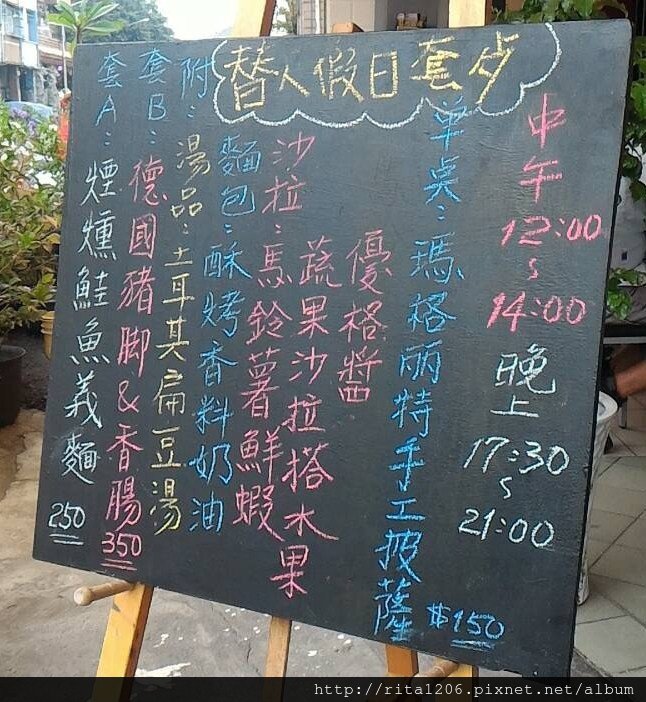 替人假日套歺
中午
12:00
~
14:00
晚上
17:30
~
21:00
單桌:瑪格丽特手工披薩 $150
優格醬
蔬果沙拉搭水果
沙拉:馬鈴薯鮮蝦
麵包:酥烤香料奶油
附:
湯品:土耳其扁豆湯
套B:德國豬脚&香腸 350
套A:煙燻鮭魚義麵 250
http://rita1206.pixnet.net/album